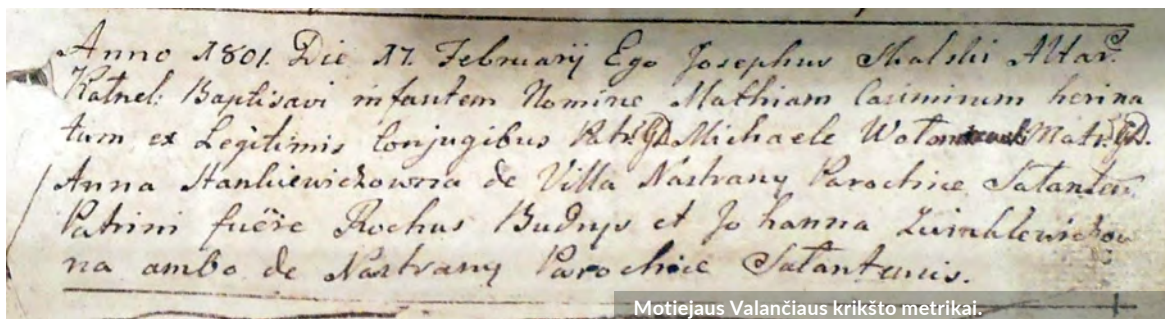 Anno 1801. Die 17. Februarij Ego Josephus Skalski Altar.
Kalnel: Baptisavi infantem Nomine Mathiam Casimirum heri na
tum ex Legitimis Conjugibus Patr. Michaele Matr.
Anna Stankiewiczowna de Villa Nastrany Parochiæ Sałanten
Patrini fuëre Rochus Budrys et Johanna
na ambo de Nastrany Parochiæ Sałantensis.
Motiejaus Valančiaus krikšto metrikai.